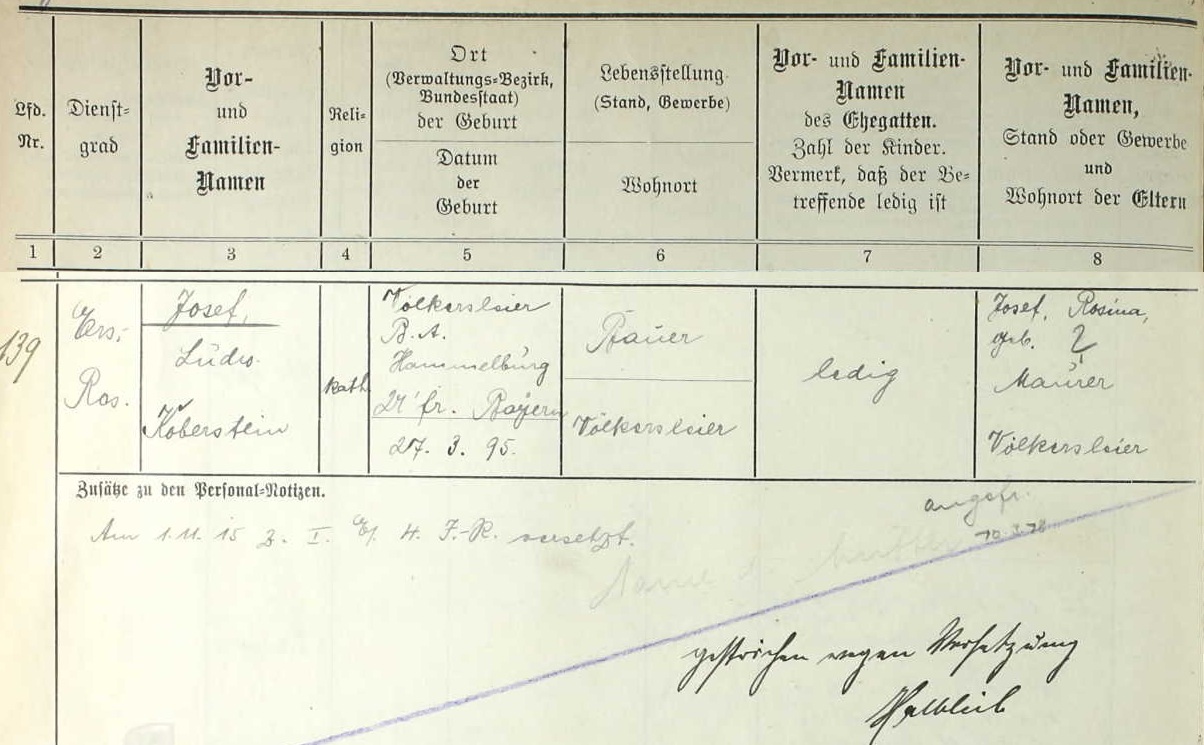 Lfd.
Nr.
Dienst=
grad
Vor-
und
Familien-
Namen
Reli=
gion
Ort
(Verwaltungs=Bezirk,
Bundesstaat)
der Geburt
Datum
der
Geburt
Lebensstellung
(Stand, Gewerbe)
Wohnort
Vor- und Familien-
Namen
des Ehegatten.
Zahl der Kinder.
Vermerk, daß der Be=
treffende ledig ist
Vor- und Familien-
Namen,
Stand oder Gewerbe
und
Wohnort der Eltern
1 2 3 4 5 6 7 8
139
Ers.-
Res.
Josef,
Ludw.
Köberstein
kath.
Völkersleier
B.A.
Hammelburg
U'fr. Bayern
27. 3. 95.
Bauer
Völkersleier
ledig
Josef, Rosina,
geb. ?
Maurer
Völkersleier
Zusätze zu den Personal=Notizen.
Am 1.11.15 z. I. E/. 4. J.-R. versetzt.
angefr.
10.3.28
Name d. Mutter
gestrichen wegen Versetzung
Halbleib